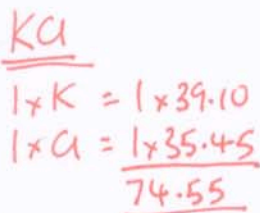 KCl
1 x K = 1 x 39.10
1 x Cl = 1 x 35.45
74.55